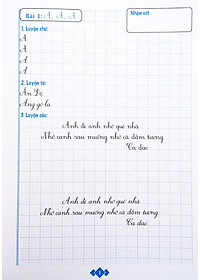 Bài 1: A, A, A
Nhận xét
1. Luyện chữ:
A
A
A
A
2. Luyện từ:
Ấn Độ
Ăng gô la
3. Luyện câu:
Anh đi anh nhớ quê nhà
Nhớ canh rau muống nhớ cà dầm tương
Ca dao
Anh đi anh nhớ quê nhà
Nhớ canh rau muống nhớ cà dầm tương
Ca dao
1